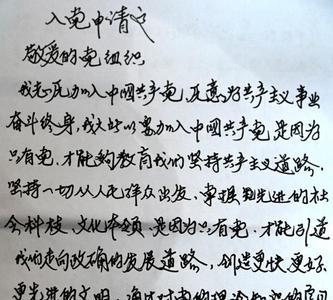 入党申请书
敬爱的党组织
我志愿加入中國共产党,愿意为共产主义事业
奋斗终身,我之所以要加入中國共产党,是因为
只有党,才能夠教育我们坚持共产主义道路,
坚持一切从人民群众出发,掌握先进的社
会科技、文化本领,是因为只有党,才能引导
我们走向政确的发展道路,创造更快、更好、
更先进的文明,通过对党的理论知识的